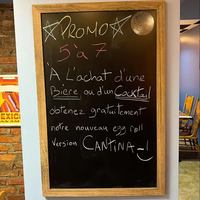 ☆PROMO☆
5 à 7
À L'achat d'une
Bière ou d'un Cocktail
obtenez gratuitement
notre nouveau egg roll
version CANTINA